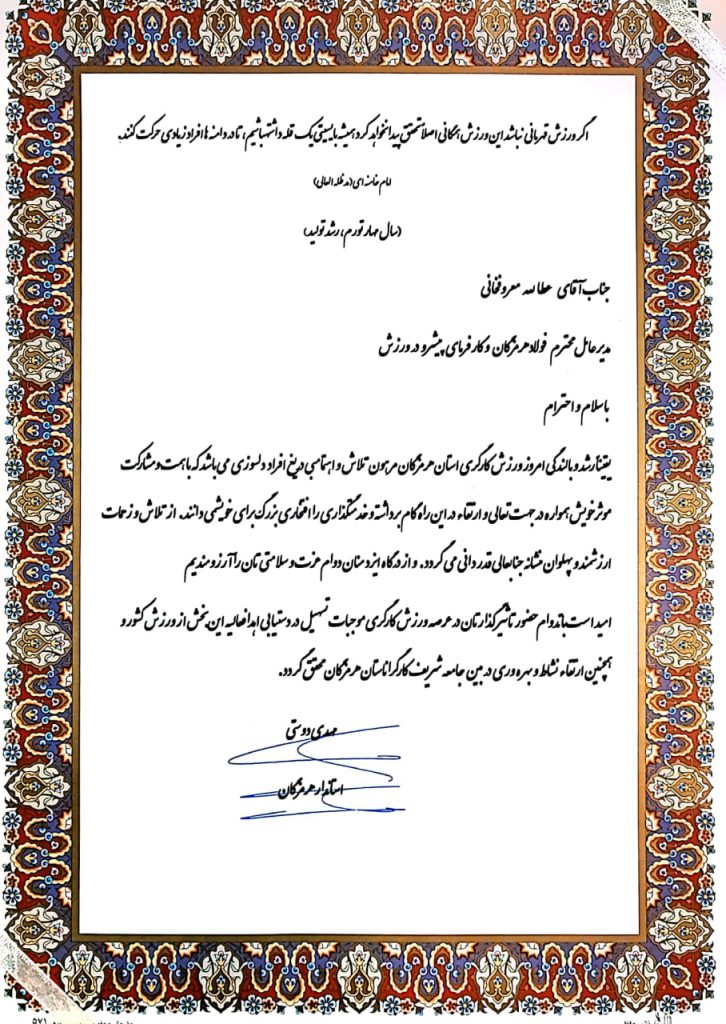 اگر ورزش قهرمانی نباشد این ورزش همگانی اصلا تحقق پیدا نخواهد کرد همیشه بایستی یک قله داشته باشیم، تا در دامنه ها افراد زیادی حرکت کنند.
امام خامنه ای (مدظله العالی)
(سال مهار تورم، رشد تولید)
جناب آقای عطا الله معروفخانی
مدیرعامل محترم فولاد هرمزگان و کارفرمای پیشرو در ورزش
با سلام و احترام
یقیناً رشد و بالندگی امروز ورزش کارگری استان هرمزگان مرهون تلاش و اهتمام بی دریغ افراد دلسوزی می باشد که با همت و مشارکت
موثر خویش همواره در جهت تعالی و ارتقاء در این راه گام برداشته و خدمتگذاری را افتخاری بزرگ برای خویش می دانند. از تلاش و زحمات
ارزشمند و پهلوان منشانه جنابعالی قدردانی می گردد. و از درگاه ایزد منان دوام عزت و سلامتی تان را آرزومندیم
امید است با تداوم حضور تاثیرگذارتان در عرصه ورزش کارگری موجبات تسهیل در دستیابی اهداف عالیه این بخش از ورزش کشور و
همچنین ارتقاء نشاط و بهره وری در بین جامعه شریف کارگران استان هرمزگان محقق گردد.
مهدی دوستی
استاندار هرمزگان
۵۷۱